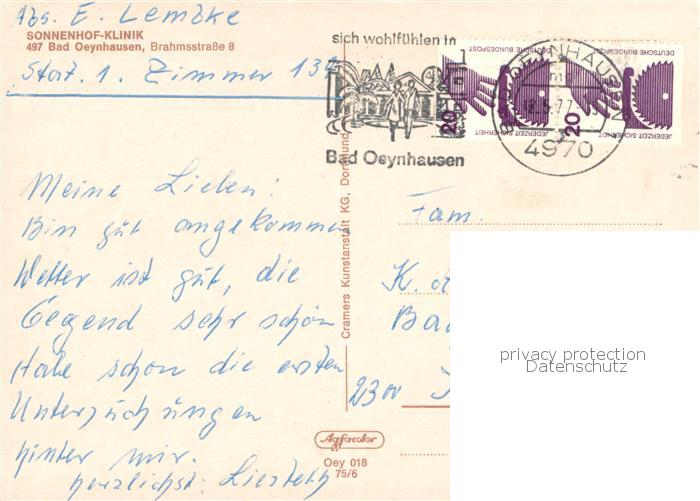 Abs. E. Lembke
SONNENHOF-KLINIK
497 Bad Oeynhausen, Brahmsstraße 8
Stat. 1. Zimmer 132
sich wohlfühlen in
Bad Oeynhausen
BAD OEYNHAUSEN
18.5.77
4970
DEUTSCHE BUNDESPOST
DEUTSCHE BUNDESPOST
20
JEDERZEIT SICHERHEIT
20
JEDERZEIT SICHERHEIT
Meine Lieben!
Bin gut angekommen
Wetter ist gut, die
Gegend sehr schön
Habe schon die ersten
Untersuchungen
hinter mir.
herzlichst
Cramers Kunstanstalt KG, Dortmund
Agfacolor
Oey 018
75/6
Fam.
K.
Ba
2300
privacy protection
Datenschutz